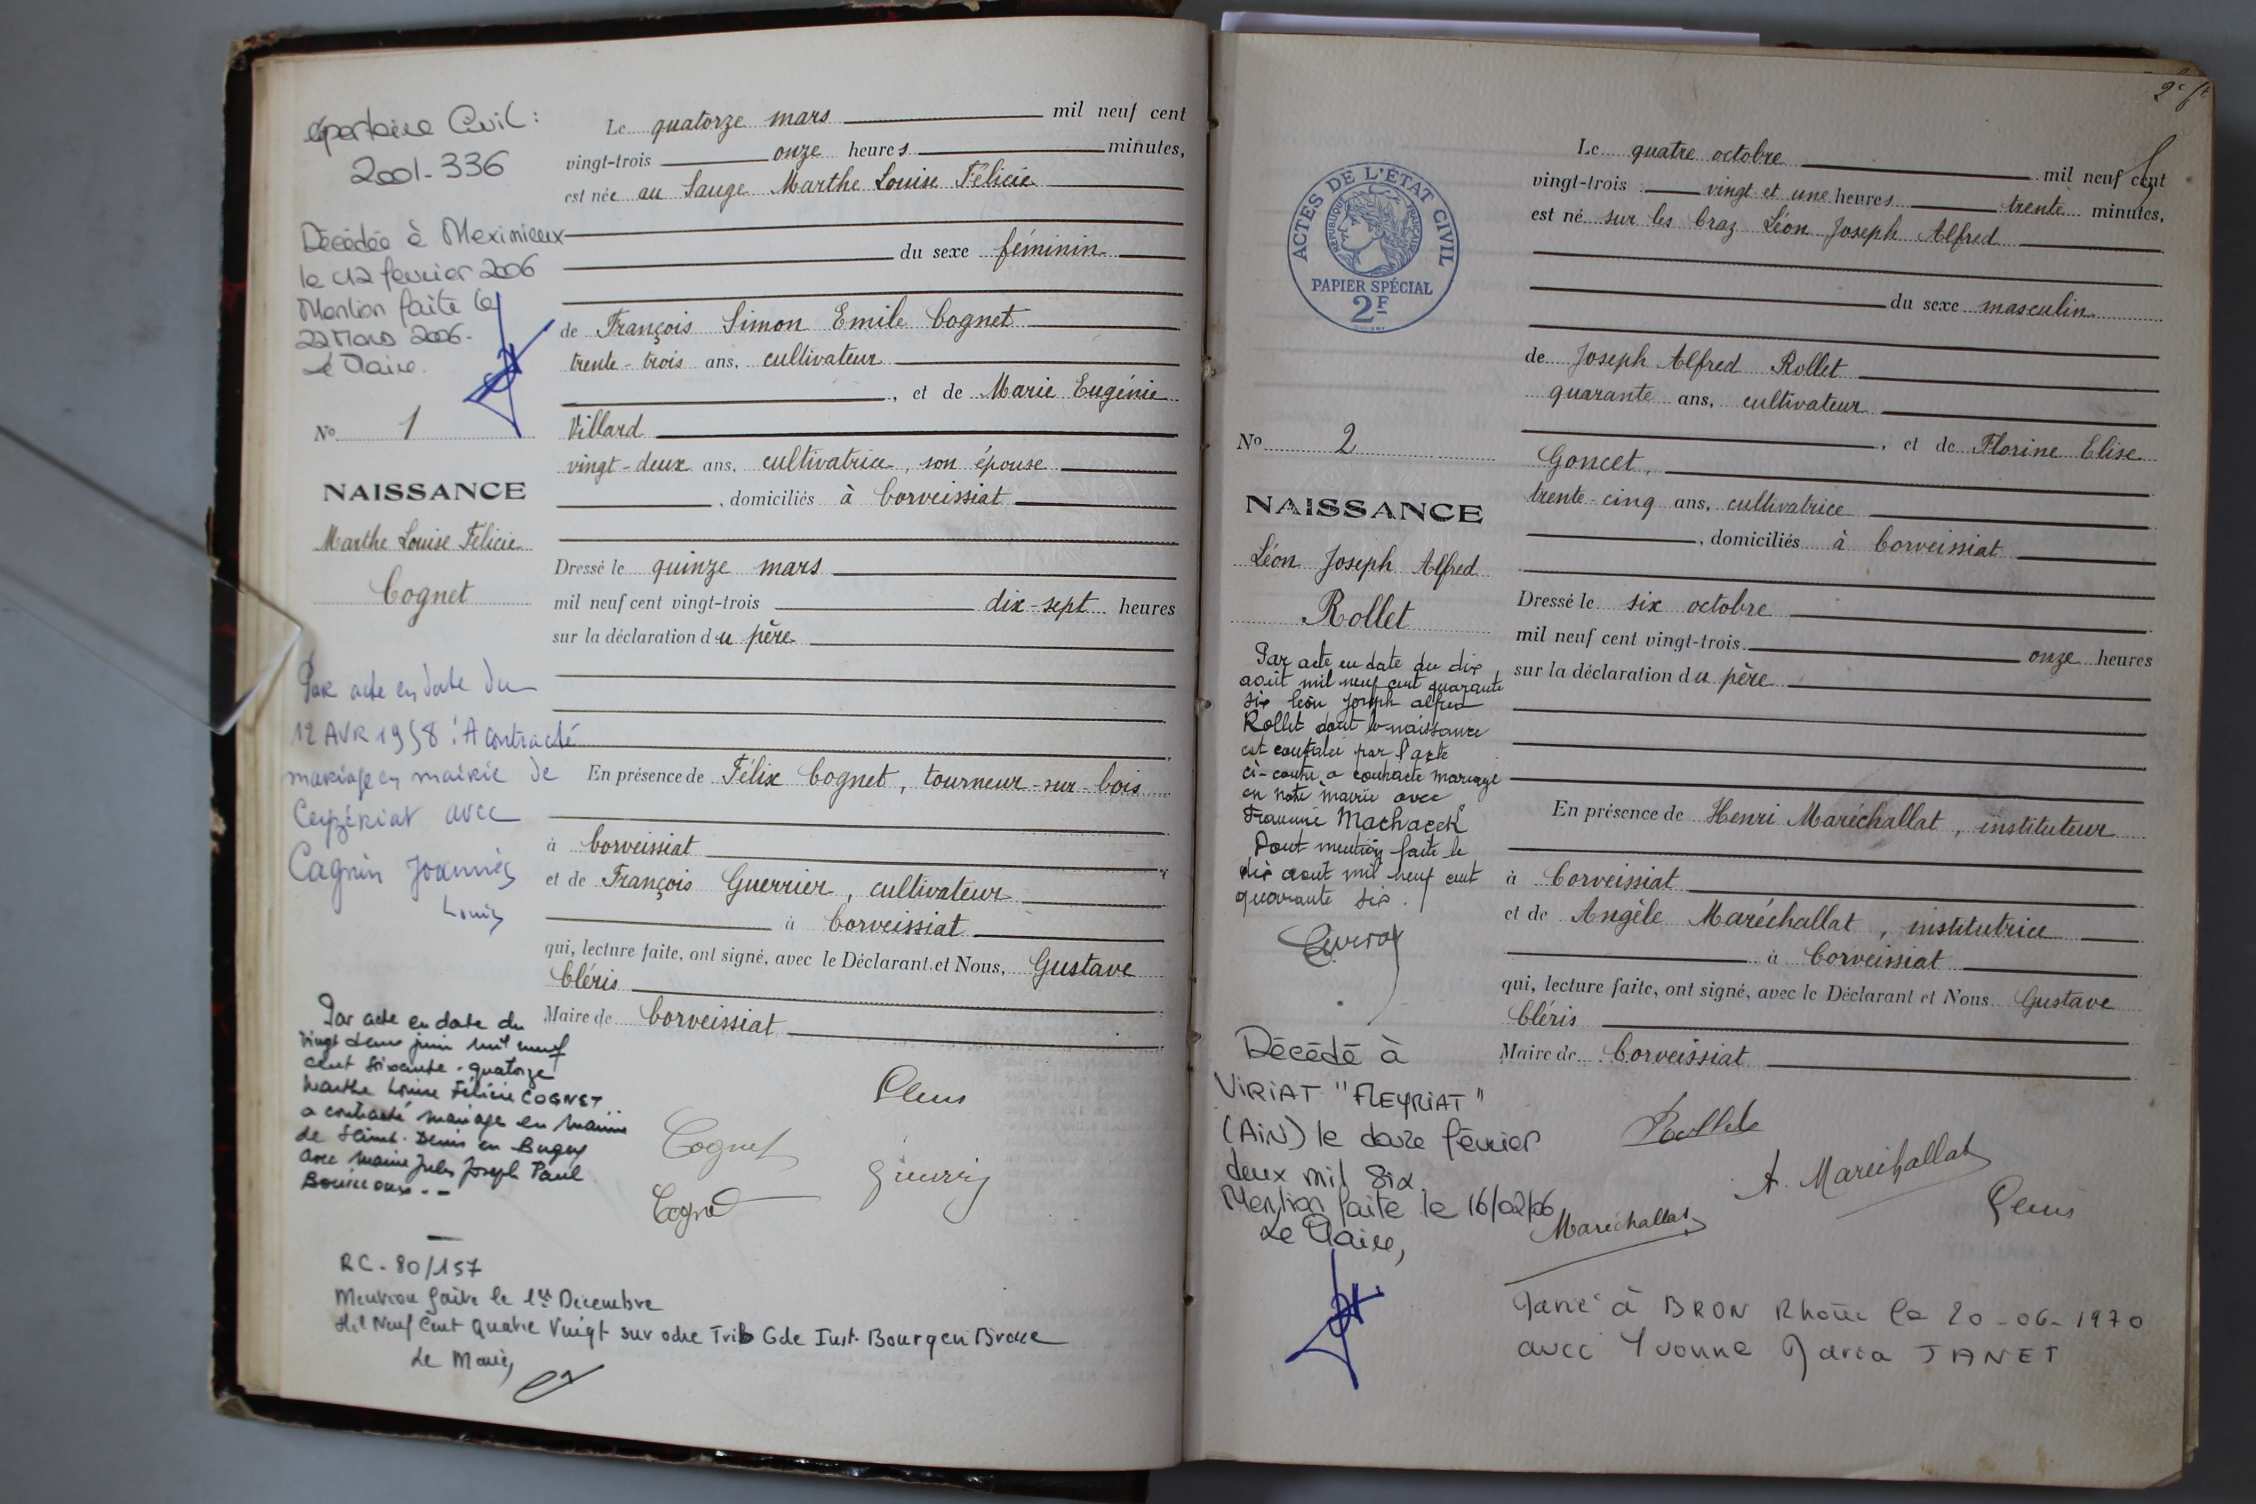 Répertoire Civil :
2001-336
Décédée à Meximieux
le 12 février 2006
Mention faite le
22 Mars 2006.
Le Maire.
No 1
NAISSANCE
Marthe Louise Félicie
Cognet
Par acte en date du
12 AVR 1958 : A contracté
mariage en mairie de
Ceyzériat avec
Cagnin Joannès
Louis
Par acte en date du
vingt deux juin mil neuf
cent soixante-quatorze
Marthe Louise Félicie COGNET
a contracté mariage en mairie
de Saint-Denis en Bugey
avec Marie Jules Joseph Paul
RC-80/157
Mention faite le 1er Decembre
Mil Neuf Cent Quatre Vingt sur odre Trib Gde Inst. Bourg en Bresse
Le Maire,
Le quatorze mars mil neuf cent
vingt-trois onze heures minutes,
est née au Sauge Marthe Louise Félicie
du sexe féminin
de François Simon Emile Cognet
trente-trois ans, cultivateur
, et de Marie Eugénie
Villard
vingt-deux ans, cultivatrice, son épouse
, domiciliés à Corveissiat
Dressé le quinze mars
mil neuf cent vingt-trois dix-sept heures
sur la déclaration du père
En présence de Félix Cognet, tourneur-sur-bois
à Corveissiat
et de François Guerrier, cultivateur
à Corveissiat
qui, lecture faite, ont signé, avec le Déclarant et Nous, Gustave
Cléris
Maire de Corveissiat
Cléris
Cognet
Cognet
2e ft
ACTES DE L'ÉTAT CIVIL
RÉPUBLIQUE FRANÇAISE
PAPIER SPÉCIAL
2F
No 2
NAISSANCE
Léon Joseph Alfred
Rollet
Par acte en date du dix
août mil neuf cent quarante
six Léon Joseph Alfred
Rollet dont la naissance
est constatée par l'acte
ci-contre a contracté mariage
en notre mairie avec
Machacek
Dont mention faite le
dix août mil neuf cent
quarante six.
Décédé à
VIRIAT "FLEYRIAT"
(AIN) le douze février
deux mil six.
Mention faite le 16/02/06
Le Maire,
Le quatre octobre mil neuf cent
vingt-trois vingt et une heures trente minutes,
est né sur les Craz Léon Joseph Alfred
du sexe masculin
de Joseph Alfred Rollet
quarante ans, cultivateur
, et de Florine Elise
Goncet,
trente-cinq ans, cultivatrice
, domiciliés à Corveissiat
Dressé le six octobre
mil neuf cent vingt-trois onze heures
sur la déclaration du père
En présence de Henri Maréchallat, instituteur
à Corveissiat
et de Angèle Maréchallat, institutrice
à Corveissiat
qui, lecture faite, ont signé, avec le Déclarant et Nous Gustave
Cléris
Maire de Corveissiat
Rollet
A. Maréchallat
Maréchallat
Cléris
Marié à BRON Rhône le 20-06-1970
avec Yvonne Maria JANET